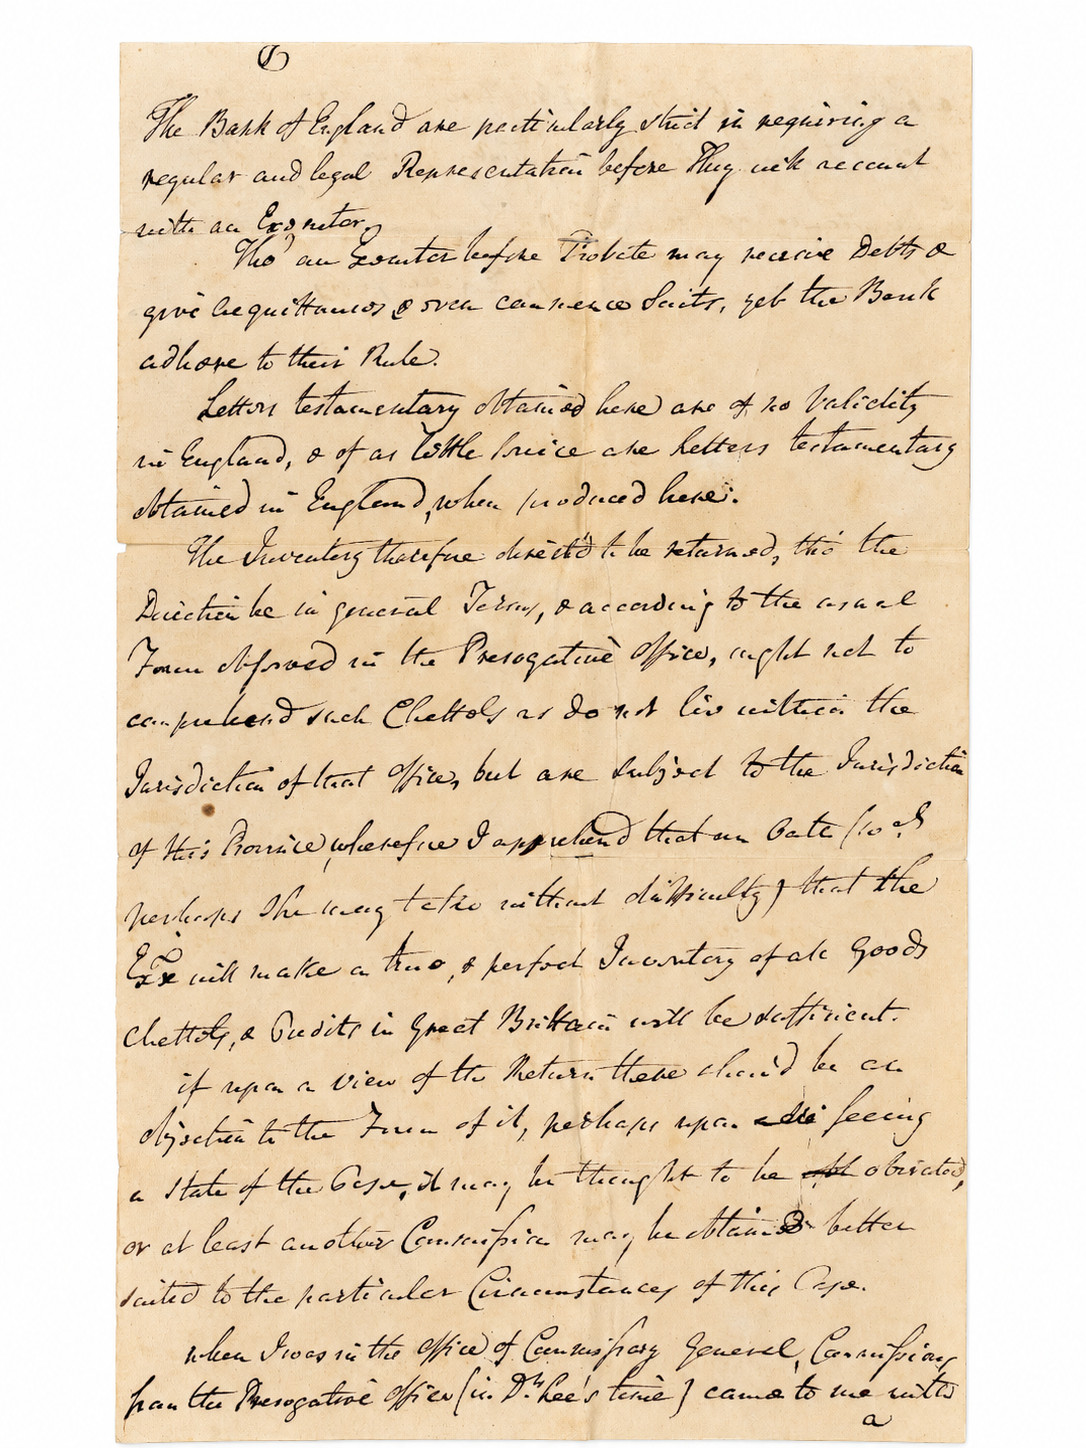 The Bank of England are particularly strict in requiring a
regular and legal Representation before They will account
with an Executor.
Tho' an Executor before Probate may receive Debts &
give Acquittances & even commence Suits, yet the Bank
adhere to their Rule.
Letters testamentary obtained here are of no Validity
in England, & of as little Service are Letters testamentary
obtained in England, when produced here.
The Inventory therefore directed to be returned, tho' the
Direction be in general Terms, & according to the usual
Form observed in the Prerogative Office, ought not to
comprehend such Chattels as do not lie within the
Jurisdiction of that Office, but are subject to the Jurisdiction
of this Province, wherefore I apprehend that an Oath (wch
perhaps She may take without difficulty) that the
ExTx will make a true, & perfect Inventory of all Goods
Chattels, & Credits in Great Brittain will be sufficient.
if upon a view of the Return there shou'd be an
objection to the Form of it, perhaps upon seeing
a State of the Case, it may be thought to be obviated,
or at least another Commission may be obtained better
suited to the particular Circumstances of this Case.
when I was in the office of Commissary General, Commissions
from the Prerogative Office (in Dr. Lee's time) came to me with
a